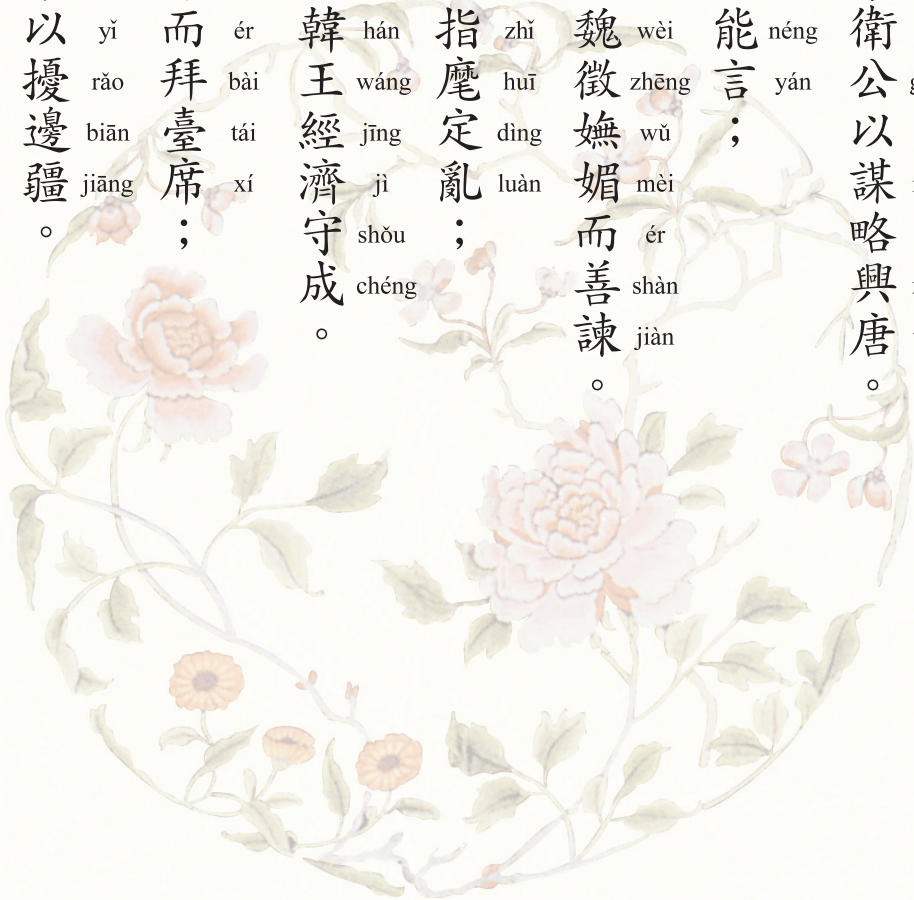 衛公以謀略興唐。
能言；
néng yán
魏徵嫵媚而善諫。
wèi zhēng wǔ mèi ér shàn jiàn
指麾定亂；
zhǐ huī dìng luàn
韓王經濟守成。
hán wáng jīng jì shǒu chéng
而拜臺席；
ér bài tái xí
以擾邊疆。
yǐ rǎo biān jiāng